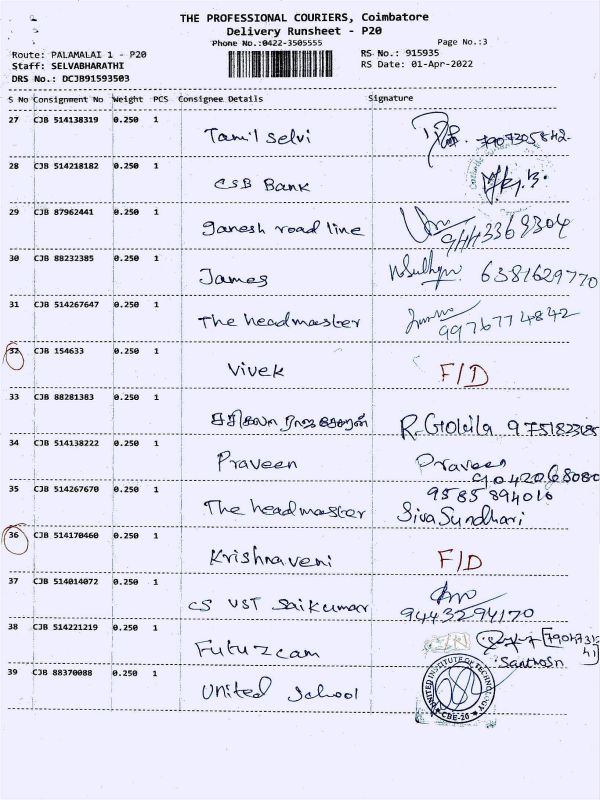 THE PROFESSIONAL COURIERS, Coimbatore
Delivery Runsheet - P20
Phone No.:0422-3505555
Page No.:3
Route: PALAMALAI 1 - P20
RS No.: 915935
Staff: SELVABHARATHI
RS Date: 01-Apr-2022
DRS No.: DCJB91593503
S No Consignment No Weight PCS Consignee Details Signature
27 CJB 514138319 0.250 1
Tamil Selvi
28 CJB 514218182 0.250 1
CSB Bank
29 CJB 87962441 0.250 1
ganesh road line
30 CJB 88232385 0.250 1
James 6381629770
31 CJB 514267647 0.250 1
The headmaster 9976774842
32 CJB 154633 0.250 1
Vivek F/D
33 CJB 88281383 0.250 1
சசிகலா ராஜசேகரன் R. Gokila
34 CJB 514138222 0.250 1
Praveen Praveen
9042068080
35 CJB 514267670 0.250 1
9585894016
The headmaster Siva Sundhari
36 CJB 514170460 0.250 1
Krishnaveni F/D
37 CJB 514014072 0.250 1
CS VST Saikumar 9443294170
38 CJB 514221219 0.250 1
Futuzcam Santhosh
39 CJB 88370088 0.250 1
United School
UNITED INSTITUTE OF TECHNOLOGY
CBE-20